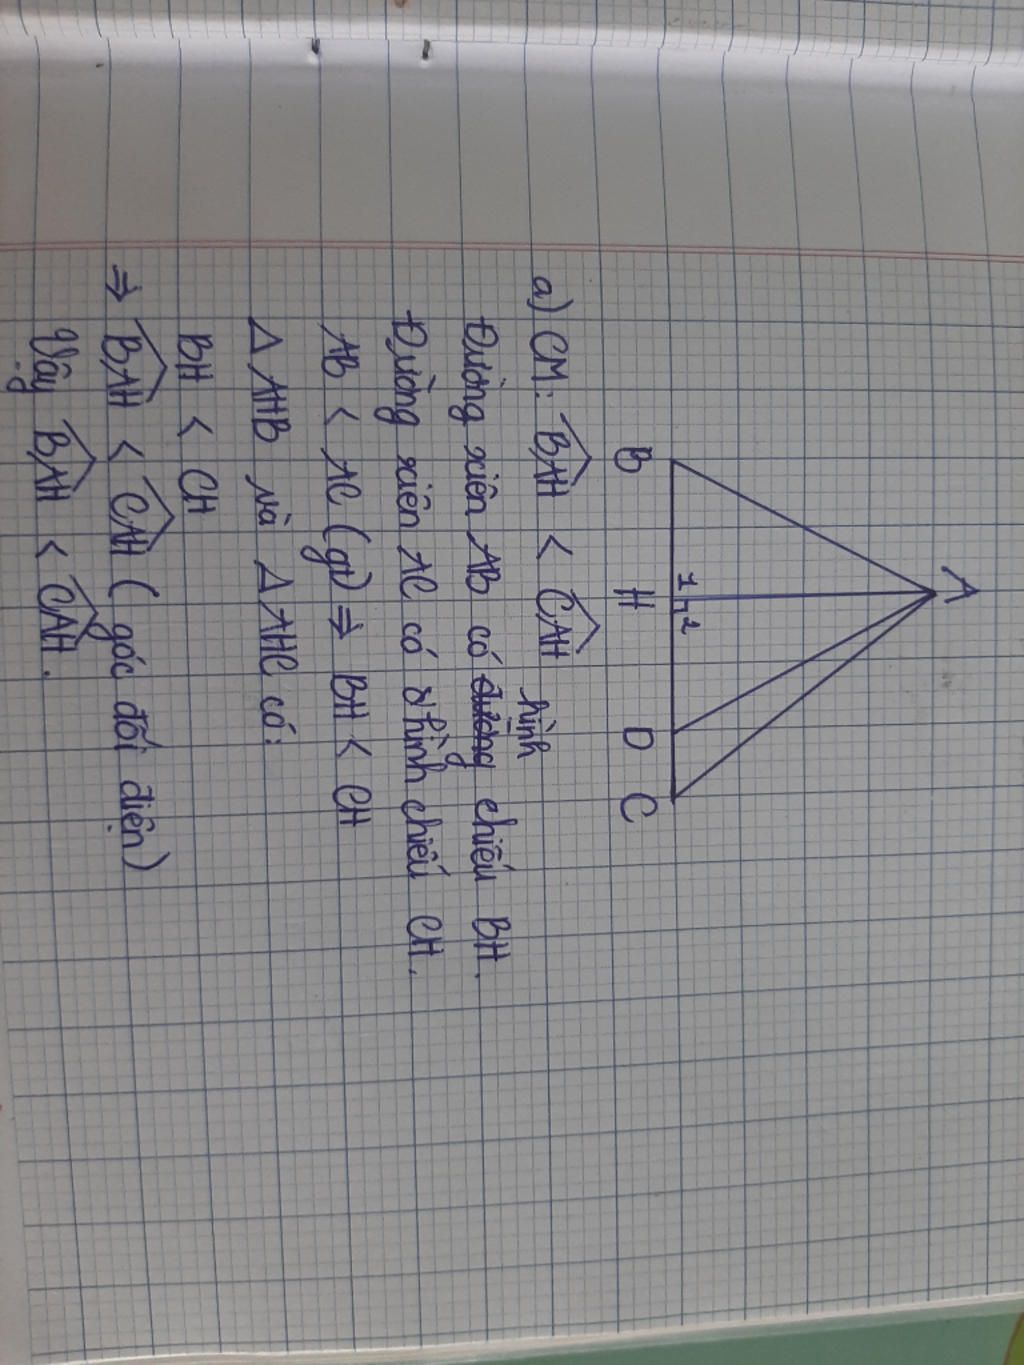 A
1 2
B H D C
a) CM: BAH < CAH
hình
Đường xiên AB có đường chiếu BH.
Đường xiên AC có hình chiếu CH.
AB < AC (gt) ⇒ BH < CH
Δ AHB và Δ AHC có:
BH < CH
⇒ BAH < CAH ( góc đối điện)
Vậy BAH < CAH.